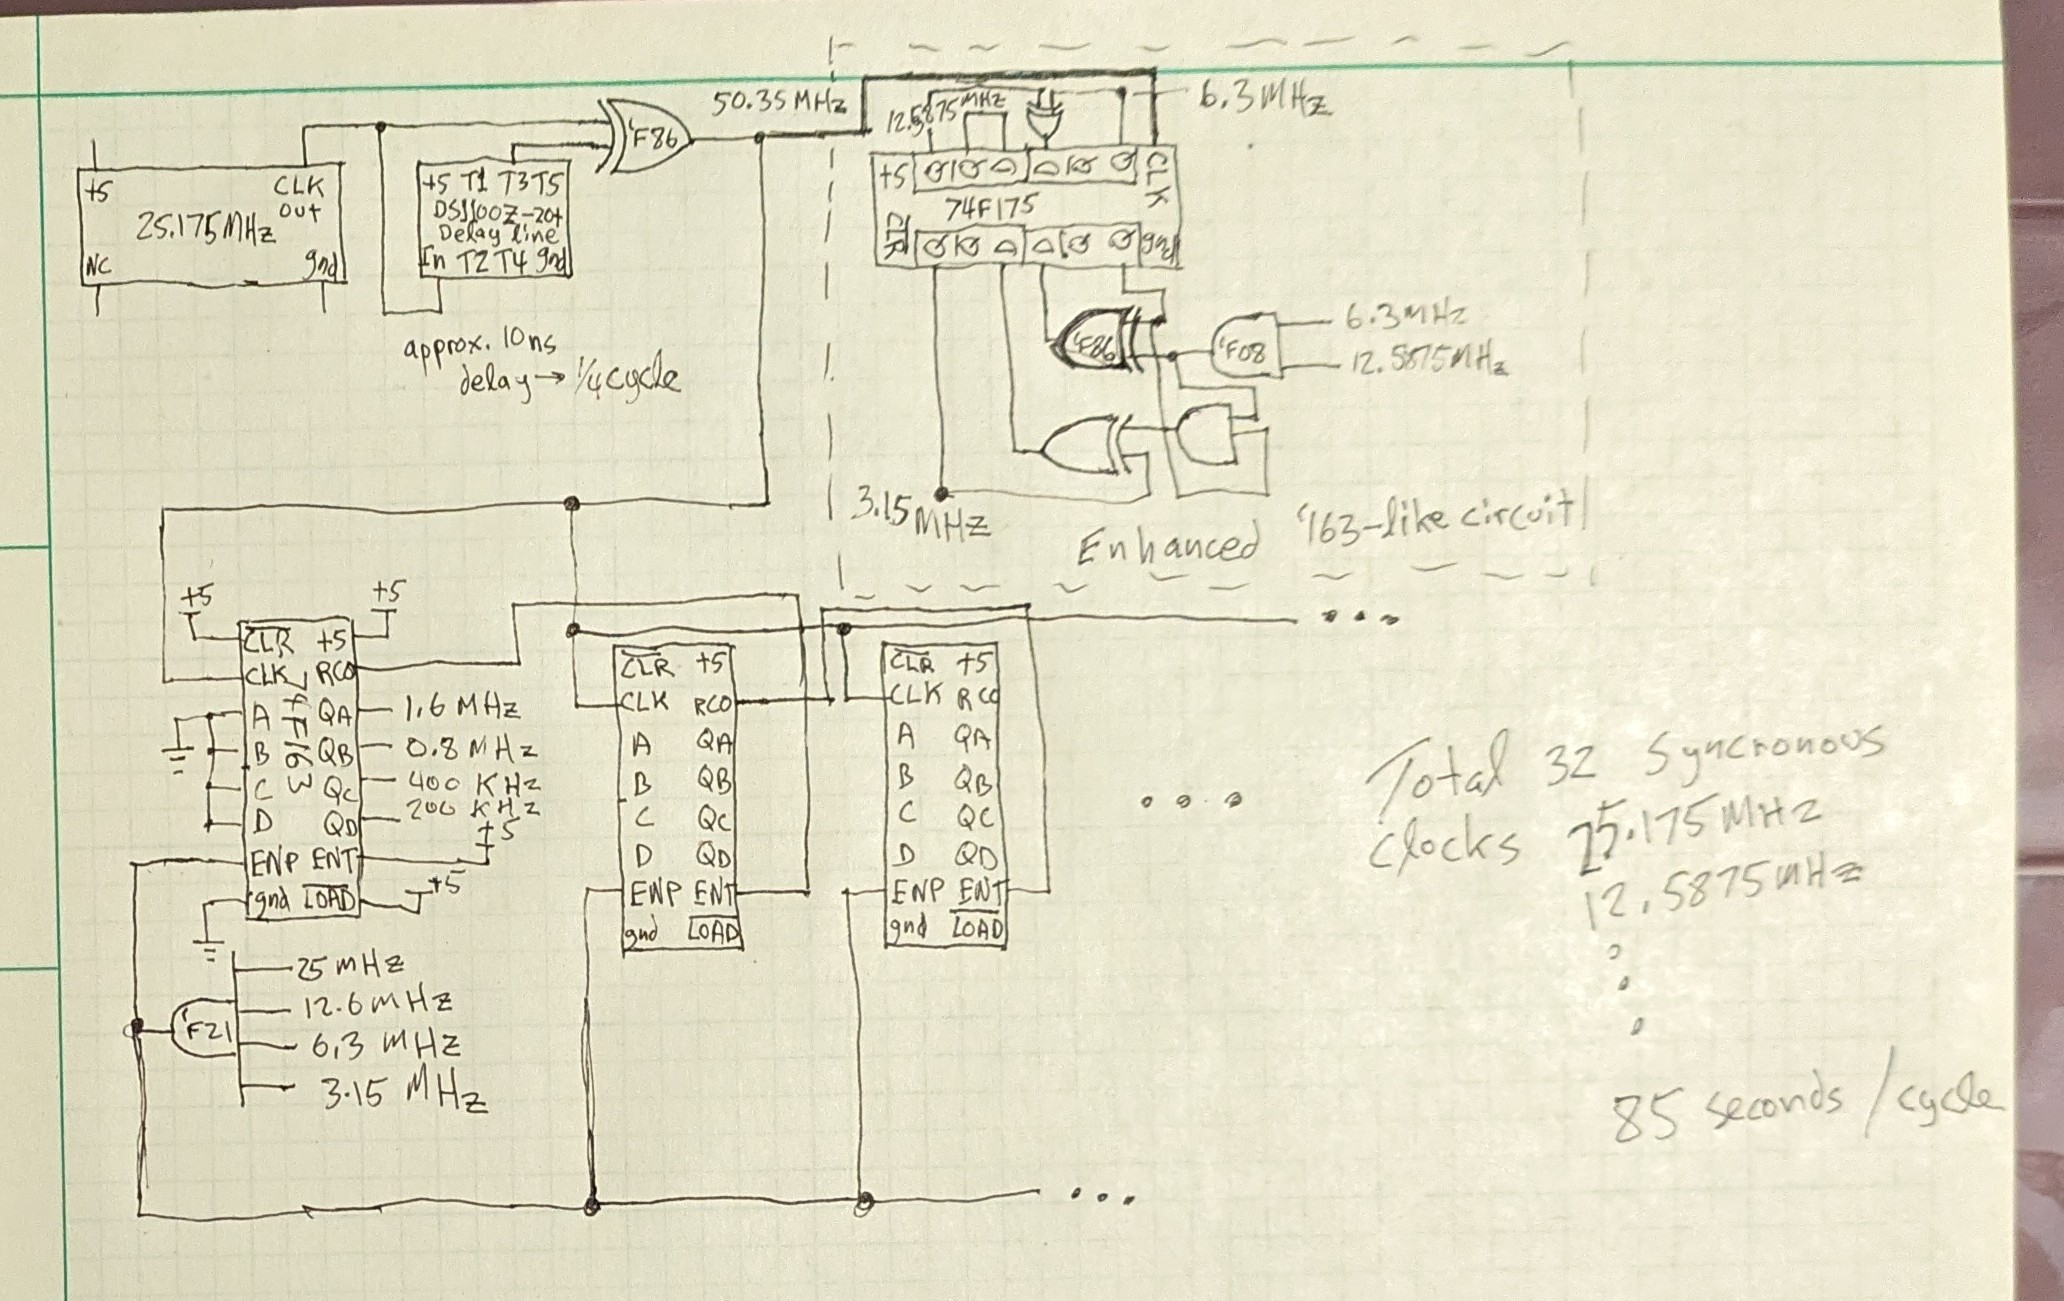 +5 CLK
out
25.175MHz
NC gnd
+5 T1 T3 T5
DS1100Z-20+
Delay line
In T2 T4 gnd
approx. 10ns
delay → 1/4 cycle
'F86
50.35 MHz
12.5875 MHz
6.3 MHz
+5 Q Q D D Q Q CLK
74F175
CLR Q Q D D Q Q gnd
'F86
'F08
6.3 MHz
12.5875 MHz
3.15 MHz
Enhanced '163-like circuit
+5
+5
CLR +5
CLK RCO
74F163
A QA 1.6 MHz
B QB 0.8 MHz
C QC 400 KHz
D QD 200 KHz
+5
ENP ENT
gnd LOAD +5
'F21
25 MHz
12.6 MHz
6.3 MHz
3.15 MHz
CLR +5
CLK RCO
A QA
B QB
C QC
D QD
ENP ENT
gnd LOAD
CLR +5
CLK RCO
A QA
B QB
C QC
D QD
ENP ENT
gnd LOAD
...
...
...
Total 32 Syncronous
clocks 25.175MHz
12.5875MHz
.
.
.
85 seconds/cycle